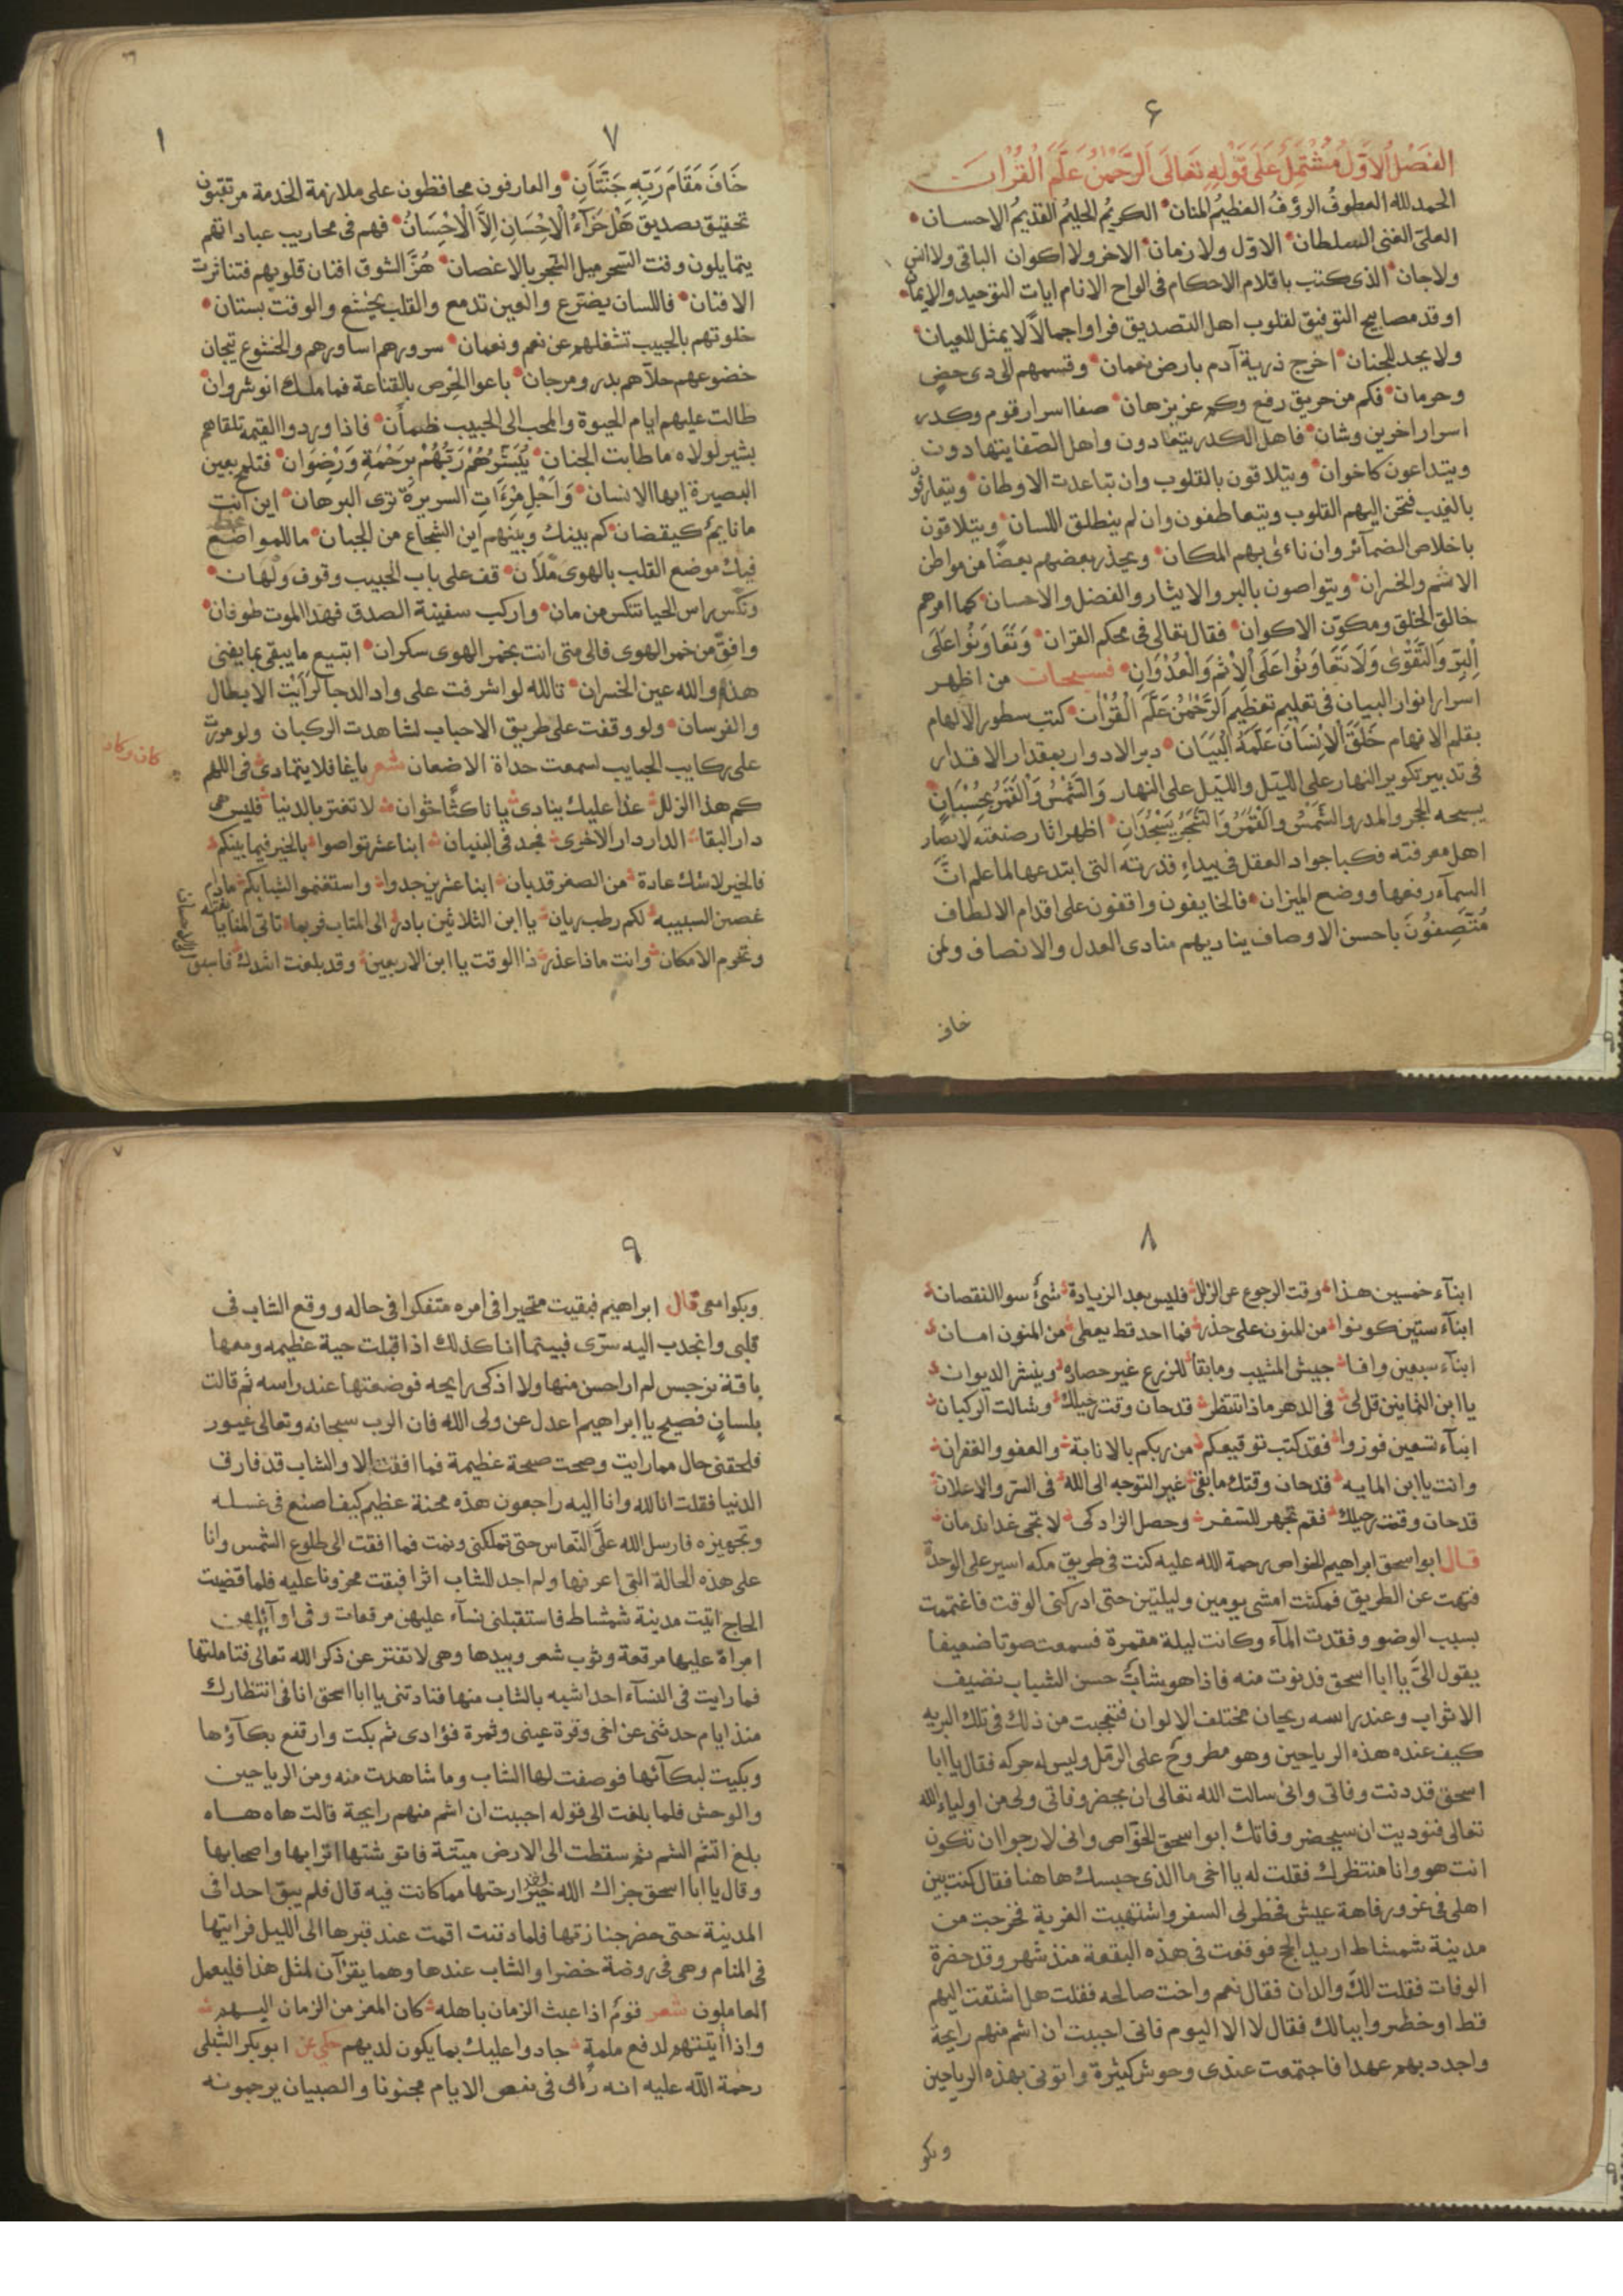 ٦
الفَصْلُ الاَوَّلُ مُشْتَمِلٌ عَلَى قَوْلِهِ تَعَالَى اَلرَّحْمٰنُ عَلَّمَ الْقُرْاٰنَ
الحمد لله العطوفُ الرؤفُ العظيمُ المنان الكريمُ الحليمُ القديمُ الاحسان
العلىّ الغنى السلطان الاوّل ولا زمان الاخر ولا اكوان الباقى ولا انس
ولا جان الذى كتب باقلام الاحكام فى الواح الانام ايات التوحيد والايمان
اوقد مصابيح التوفيق لقلوب اهل التصديق فراوا جمالاً لا يمثل للعيان
ولا يحد للجنان اخرج ذرية آدم بارض نعمان وقسمهم الى ذى حضٍ
وحرمان فكم من حريق رفع وكم عزيز هان صفا اسرار قوم وكدر
اسرار اخرين وشان فاهل الكدر يتعادون واهل الصفا يتهادون
ويتداعون كاخوان ويتلاقون بالقلوب وان تباعدت الاوطان ويتعارفون
بالغيب فتحن اليهم القلوب ويتعاطفون وان لم ينطلق اللسان ويتلاقون
باخلاص الضمائر وان ناءى بهم المكان ويحذر بعضهم بعضًا من مواطن
الاثم والخسران ويتواصون بالبر والايثار والفضل والاحسان كما امرهم
خالق الخلق ومكوّن الاكوان فقال تعالى فى محكم القران وَتَعَاوَنُوا عَلَى
الْبِرِّ وَالتَّقْوٰى وَلَا تَعَاوَنُوا عَلَى الْاِثْمِ وَالْعُدْوَانِ فسبحان من اظهر
اسرار انوار البيان فى تعليم تعظيم اَلرَّحْمٰنُ عَلَّمَ الْقُرْاٰنَ كتب سطور الالهام
بقلم الافهام خَلَقَ الْاِنْسَانَ عَلَّمَهُ الْبَيَانَ دبر الادوار بمقدار الاقدار
فى تدبير تكوير النهار على الليل والليل على النهار وَالشَّمْسُ وَالْقَمَرُ بِحُسْبَانٍ
يسبحه الحجر والمدر والشَّمْسُ والْقَمَرُ وَالشَّجَرُ يَسْجُدَانِ اظهر اثار صنعته لابصار
اهل معرفته فكبا جواد العقل فى بيداءِ قدرته التى ابتدعها لما علم انَّ
السمآء رفعها ووضع الميزان فالخايفون واقفون على اقدام الالطاف
مُتَّصِفُونَ باحسن الاوصاف يناديهم منادى العدل والانصاف ولمن
خاف
٧
١
خَافَ مَقَامَ رَبِّهِ جَنَّتَانِ والعارفون محافظون على ملازمة الخدمة مرتقبون
تحقيق تصديق هَلْ جَزَآءُ الْاِحْسَانِ اِلَّا الْاِحْسَانُ فهم فى محاريب عباداتهم
يتمايلون وقت السحر ميل الشجر بالاغصان هُزَّ الشوق افنان قلوبهم فتناثرت
الافنان فاللسان يضترع والعين تدمع والقلب يخشع والوقت بستان
خلوتهم بالحبيب تشغلهم عن نعم ونعمان سرورهم اساورهم والخشوع تيجان
خضوعهم حلاّهم بدر ومرجان باعوا الحرص بالقناعة فما ملك انوشروان
طالت عليهم ايام الحيوة والمحب الى الحبيب ظمأن فاذا وردوا القيمة تلقاهم
بشير لولاه ما طابت الجنان يُبَشِّرُهُمْ رَبُّهُمْ بِرَحْمَةٍ وَرِضْوَان فتلمح بعين
البصيرة ايها الانسان وَاَجْلِ مِرْءَاتِ السريرة ترى البرهان اين انت
ما نايمٌ كيقضان كم بينك وبينهم اين الشجاع من الجبان ما للمواعظ
فيك موضع القلب بالهوى ملأن قف على باب الحبيب وقوف ولهان
ونكّس راس الحيا تنكس من مان واركب سفينة الصدق فهذا الموت طوفان
وافق من خمر الهوى فالى متى انت بخمر الهوى سكران اتبيع ما يبقى بما يفنى
هذا والله عين الخسران تالله لو اشرفت على واد الدجا لرأيت الابطال
والفرسان ولو وقفت على طريق الاحباب لشاهدت الركبان ولو مررت
على ركايب الحبايب لسمعت حداة الاضعان شعر يا غافلا يتمادى فى اللهو
كان وكان
كم هذا الزلل غدا عليك ينادى يا ناكثًا خوان لا تغتر بالدنيا فليس هى
دار البقا الدار دار الاخرى فجد فى البنيان ابنا عشر تواصوا بالخير فيما بينكم
فالخير لا شك عادة من الصغر قد بان ابنا عشرين جدوا واستغنموا الشبابكم مادام
غصن السبيبه لكم رطب ريان يا ابن الثلاثين بادر الى المتاب فربما تاتى المنايا
وتخرم الامكان وانت ماذا عذر ذا الوقت يا ابن الاربعين وقد بلغت اشدك فاسبق
٨
ابنآء خمسين هذا وقت الرجوع عن الزلل فليس بعد الزيادة شئ سوا النقصان
ابنآء ستين كونوا من المنون على حذر فما احد قط يعطى من المنون امان
ابنآء سبعين وافا جيش المشيب وما بقا للزرع غير حصاده وينشر الديوان
يا ابن الثمانين قل لى فى الدهر ماذا تنتظر قد حان وقت رحيلك وشالت الركبان
ابنآء تسعين فوزوا فقد كتب توقيعكم من ربكم بالانابة والعفو والغفران
وانت يا ابن المايه قد حان وقتك ما بقى غير التوجه الى الله فى السر والاعلان
قد حان وقت رحيلك فقم تجهر للسفر وحصل الزاد كى لا تجى غدا ندمان
قال ابو اسحق ابراهيم الخواص رحمة الله عليه كنت فى طريق مكه اسير على الوحدة
فتهت عن الطريق فمكثت امشى يومين وليلتين حتى ادركنى الوقت فاغتممت
بسبب الوضو وفقدت المآء وكانت ليلة مقمرة فسمعت صوتا ضعيفا
يقول الىَّ يا ابا اسحق فدنوت منه فاذا هو شابٌّ حسن الشباب نضيف
الاثواب وعند راسه ريحان مختلف الالوان فتعجبت من ذلك فى تلك البريه
كيف عنده هذه الرياحين وهو مطروحٌ على الرمل وليس له حركه فقال يا ابا
اسحق قد دنت وفاتى وانى سالت الله تعالى ان يحضر وفاتى ولى من اولياء الله
تعالى فنوديت ان سيحضر وفاتك ابو اسحق الخوّاص وانى لارجوا ان تكون
انت هو وانا منتظرك فقلت له يا اخى ما الذى حبسك هاهنا فقال كنت بين
اهلى فى عز ورفاهة عيش فخطر لى السفر واشتهيت الغربة فخرجت من
مدينة شمشاط اريد الحج فوقعت فى هذه البقعة منذ شهر وقد حضرة
الوفات فقلت الك والدان فقال نعم واخت صالحه فقلت هل اشتقت اليهم
قط او خطروا ببالك فقال لا الا اليوم فانى احببت ان اشم منهم رايحة
واجدد بهم عهدا فاجتمعت عندى وحوش كثيرة واتونى بهذه الرياحين
وبكو
٧
٩
وبكوا معى قال ابراهيم فبقيت متحيرا فى امره متفكرا فى حاله ووقع الشاب فى
قلبى وانجذب اليه سرّى فبينما انا كذلك اذا قبلت حية عظيمه ومعها
باقة نرجس لم ار احسن منها ولا اذكى رايحه فوضعتها عند راسه ثم قالت
بلسانٍ فصيح يا ابراهيم اعدل عن ولى الله فان الرب سبحانه وتعالى غيور
فلحقنى حال مما رايت وصحت صيحة عظيمة فما افقت الا والشاب قد فارق
الدنيا فقلت انا لله وانا اليه راجعون هذه محنة عظيم كيف اصنع فى غسله
وتجهيزه فارسل الله علىَّ النعاس حتى تملكنى ونمت فما افقت الى طلوع الشمس وانا
على هذه الحالة التى اعرفها ولم اجد للشاب اثرا فبقت محزونا عليه فلما قضيت
الحاج اتيت مدينة شمشاط فاستقبلنى نسآء عليهن مرقعات وفى اوآئلهن
امراة عليها مرقعة وثوب شعر وبيدها وهى لا تفتر عن ذكر الله تعالى فتاملتها
فما رايت فى النسآء احدا شبه بالشاب منها فنادتنى يا ابا اسحق انا فى انتظارك
منذ ايام حدثنى عن اخى وقرة عينى وثمرة فؤادى ثم بكت وارتفع بكآؤها
وبكيت لبكآئها فوصفت لها الشاب وما شاهدت منه ومن الرياحين
والوحش فلما بلغت الى قوله احببت ان اشم منهم رايحة قالت هاه هاه
بلغ اشم الشم ثم سقطت الى الارض ميتة فاتوشتها اترابها واصحابها
وقال يا ابا اسحق جزاك الله خيرا لقد ارحتها مما كانت فيه قال فلم يبق احدا فى
المدينة حتى حضر جنازتها فلما دفنت اقمت عند قبرها الى الليل فرايتها
فى المنام وهى فى روضة خضرا والشاب عندها وهما يقرآن لمثل هذا فليعمل
العاملون شعر قومٌ اذا عبث الزمان باهله كان المعز من الزمان اليهم
واذا أتيتهم لدفع ملمةٍ جادوا عليك بما يكون لديهم حكى عن ابو بكر الشبلى
رحمة الله عليه انه رأى فى بعض الايام مجنونا والصبيان يرجمونه